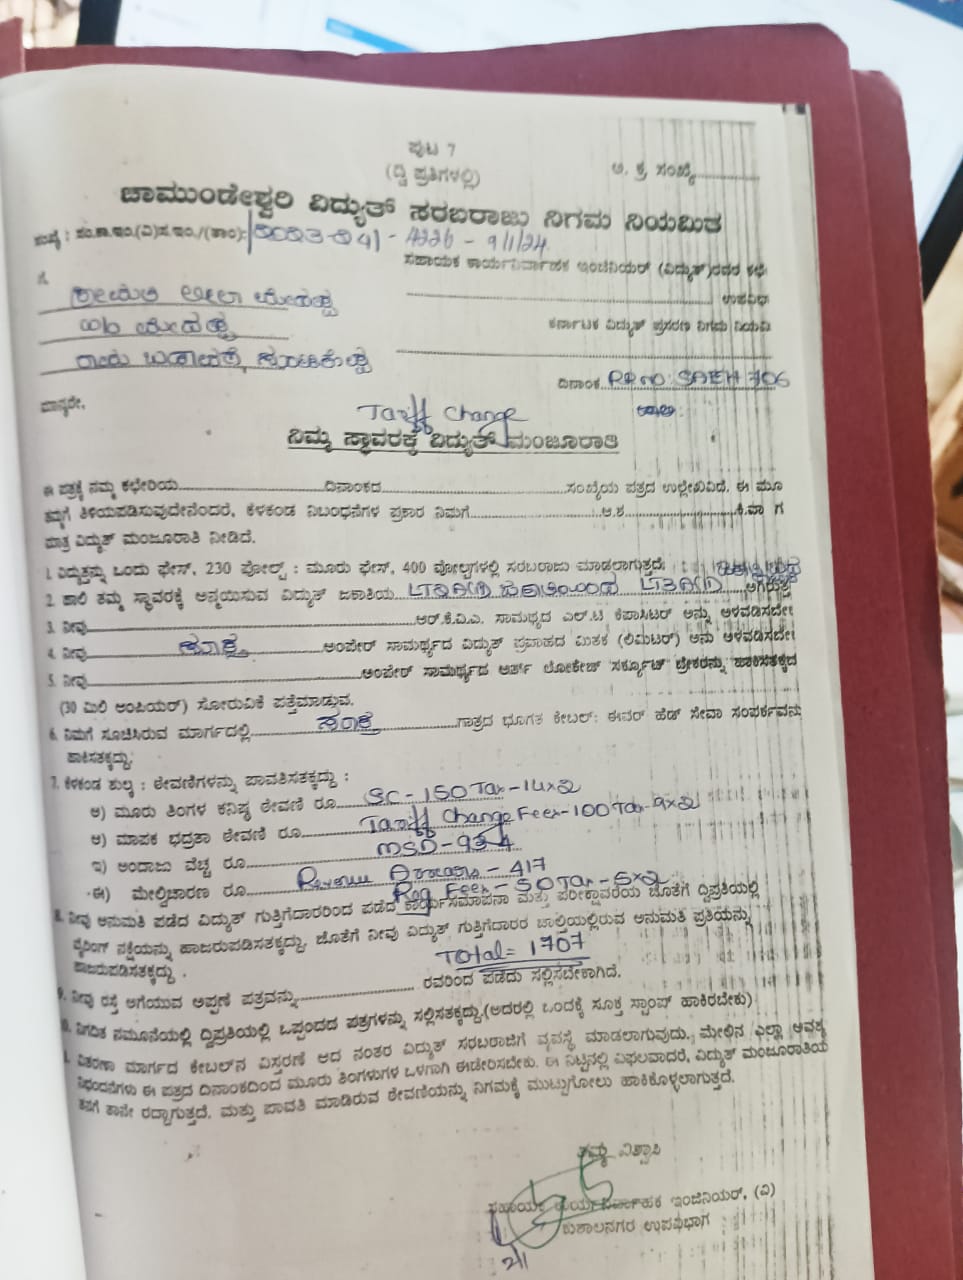 ಪುಟ 7
(ದ್ವಿ ಪ್ರತಿಗಳಲ್ಲಿ)
ಅ. ಕ್ರ. ಸಂಖ್ಯೆ
ಚಾಮುಂಡೇಶ್ವರಿ ವಿದ್ಯುತ್ ಸರಬರಾಜು ನಿಗಮ ನಿಯಮಿತ
- 9/1/24
ಸಹಾಯಕ ಕಾರ್ಯನಿರ್ವಾಹಕ ಇಂಜಿನಿಯರ್ (ವಿದ್ಯುತ್)ರವರ ಕಛೇ
ಉಪವಿಭಾ
ಕರ್ನಾಟಕ ವಿದ್ಯುತ್ ಪ್ರಸರಣ ನಿಗಮ ನಿಯಮಿ
ದಿನಾಂಕ RRno: SAEH 706
ಮಾನ್ಯರೇ,
Tariff Change
ನಿಮ್ಮ ಸ್ಥಾವರಕ್ಕೆ ವಿದ್ಯುತ್ ಮಂಜೂರಾತಿ
ಈ ಪತ್ರಕ್ಕೆ ನಮ್ಮ ಕಛೇರಿಯ ದಿನಾಂಕದ ಸಂಖ್ಯೆಯ ಪತ್ರದ ಉಲ್ಲೇಖವಿದೆ. ಈ ಮೂ
ತಮ್ಮಗೆ ತಿಳಿಯಪಡಿಸುವುದೇನೆಂದರೆ, ಕೆಳಕಂಡ ನಿಬಂಧನೆಗಳ ಪ್ರಕಾರ ನಿಮಗೆ ಅ.ಶ ಕಿ.ವಾ ಗ
ಮಾತ್ರ ವಿದ್ಯುತ್ ಮಂಜೂರಾತಿ ನೀಡಿದೆ.
1. ವಿದ್ಯುತ್ತನ್ನು ಒಂದು ಫೇಸ್, 230 ವೋಲ್ಟ್ : ಮೂರು ಫೇಸ್, 400 ವೋಲ್ಟಗಳಲ್ಲಿ ಸರಬರಾಜು ಮಾಡಲಾಗುತ್ತದೆ.
2. ಹಾಲಿ ತಮ್ಮ ಸ್ಥಾವರಕ್ಕೆ ಅನ್ವಯಿಸುವ ವಿದ್ಯುತ್ ಜಕಾತಿಯ ಆಗಿರುತ್ತ
3. ನೀವು ಆರ್.ಕೆ.ವಿ.ಎ. ಸಾಮರ್ಥ್ಯದ ಎಲ್.ಟಿ ಕೆಪಾಸಿಟರ್ ಅನ್ನು ಅಳವಡಿಸಬೇ
4. ನೀವು ಅಂಪೇರ್ ಸಾಮರ್ಥ್ಯದ ವಿದ್ಯುತ್ ಪ್ರವಾಹದ ಮಿತಕ (ಲಿಮಿಟರ್) ಅನು ಅಳವಡಿಸಬೇ
5. ನೀವು ಅಂಪೇರ್ ಸಾಮರ್ಥ್ಯದ ಅರ್ತ್ ಲೀಕೇಜ್ ಸರ್ಕ್ಯೂಟ್ ಬ್ರೇಕರನ್ನು ಹಾಕಿಸತಕ್ಕದ
(30 ಮಿಲಿ ಅಂಪಿಯರ್) ಸೋರುವಿಕೆ ಪತ್ತೆಮಾಡುವ.
6. ನಿಮಗೆ ಸೂಚಿಸಿರುವ ಮಾರ್ಗದಲ್ಲಿ ಗಾತ್ರದ ಭೂಗತ ಕೇಬಲ್: ಈವರ್ ಹೆಡ್ ಸೇವಾ ಸಂಪರ್ಕವನು
ಹಾಕಿಸತಕ್ಕದ್ದು.
7. ಕೆಳಕಂಡ ಶುಲ್ಕ : ಠೇವಣಿಗಳನ್ನು ಪಾವತಿಸತಕ್ಕದ್ದು :
ಅ) ಮೂರು ತಿಂಗಳ ಕನಿಷ್ಠ ಠೇವಣಿ ರೂ SC - 150 Tax - 14x2
ಆ) ಮಾಪಕ ಭದ್ರತಾ ಠೇವಣಿ ರೂ Tariff Change Fees - 100 Tax - 9x2
ಇ) ಅಂದಾಜು ವೆಚ್ಚ ರೂ MSD - 934
ಈ) ಮೇಲ್ವಿಚಾರಣ ರೂ Revenue - 417
Reg Fees - 50 Tax - 5x2
8. ನೀವು ಅನುಮತಿ ಪಡೆದ ವಿದ್ಯುತ್ ಗುತ್ತಿಗೆದಾರರಿಂದ ಪಡೆದ ಕಾರ್ಯಸಮಾಪನಾ ಮತ್ತು ಪರೀಕ್ಷಾವರದಿಯ ಜೊತೆಗೆ ದ್ವಿಪ್ರತಿಯಲ್ಲಿ
ವೈರಿಂಗ್ ನಕ್ಷೆಯನ್ನು ಹಾಜರುಪಡಿಸತಕ್ಕದ್ದು, ಜೊತೆಗೆ ನೀವು ವಿದ್ಯುತ್ ಗುತ್ತಿಗೆದಾರರ ಚಾಲ್ತಿಯಲ್ಲಿರುವ ಅನುಮತಿ ಪ್ರತಿಯನ್ನು
ಹಾಜರುಪಡಿಸತಕ್ಕದ್ದು .
Total = 1707
9. ನೀವು ರಸ್ತೆ ಅಗೆಯುವ ಅಪ್ಪಣೆ ಪತ್ರವನ್ನು ರವರಿಂದ ಪಡೆದು ಸಲ್ಲಿಸಬೇಕಾಗಿದೆ.
ನಿಗದಿತ ನಮೂನೆಯಲ್ಲಿ ದ್ವಿಪ್ರತಿಯಲ್ಲಿ ಒಪ್ಪಂದದ ಪತ್ರಗಳನ್ನು ಸಲ್ಲಿಸತಕ್ಕದ್ದು.(ಅದರಲ್ಲಿ ಒಂದಕ್ಕೆ ಸೂಕ್ತ ಸ್ಟಾಂಪ್ ಹಾಕಿರಬೇಕು)
ವಿತರಣಾ ಮಾರ್ಗದ ಕೇಬಲ್‌ನ ವಿಸ್ತರಣೆ ಆದ ನಂತರ ವಿದ್ಯುತ್ ಸರಬರಾಜಿಗೆ ವ್ಯವಸ್ಥೆ ಮಾಡಲಾಗುವುದು. ಮೇಲಿನ ಎಲ್ಲಾ ಅವಶ್ಯ
ನಿಭಂದನೆಗಳು ಈ ಪತ್ರದ ದಿನಾಂಕದಿಂದ ಮೂರು ತಿಂಗಳುಗಳ ಒಳಗಾಗಿ ಈಡೇರಿಸಬೇಕು. ಈ ನಿಟ್ಟಿನಲ್ಲಿ ವಿಫಲವಾದರೆ, ವಿದ್ಯುತ್ ಮಂಜೂರಾತಿಯ
ತನಗೆ ತಾನೇ ರದ್ದಾಗುತ್ತದೆ. ಮತ್ತು ಪಾವತಿ ಮಾಡಿರುವ ಠೇವಣಿಯನ್ನು ನಿಗಮಕ್ಕೆ ಮುಟ್ಟುಗೋಲು ಹಾಕಿಕೊಳ್ಳಲಾಗುತ್ತದೆ.
ತಮ್ಮ ವಿಶ್ವಾಸಿ
ಸಹಾಯಕ ಕಾರ್ಯನಿರ್ವಾಹಕ ಇಂಜಿನಿಯರ್, (ವಿ)
ಕುಶಾಲನಗರ ಉಪವಿಭಾಗ